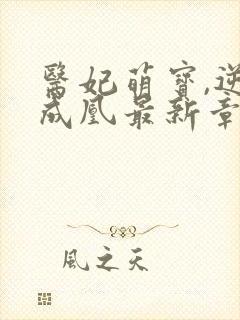 醫妃萌寶,逆
成凰最新章
風之天